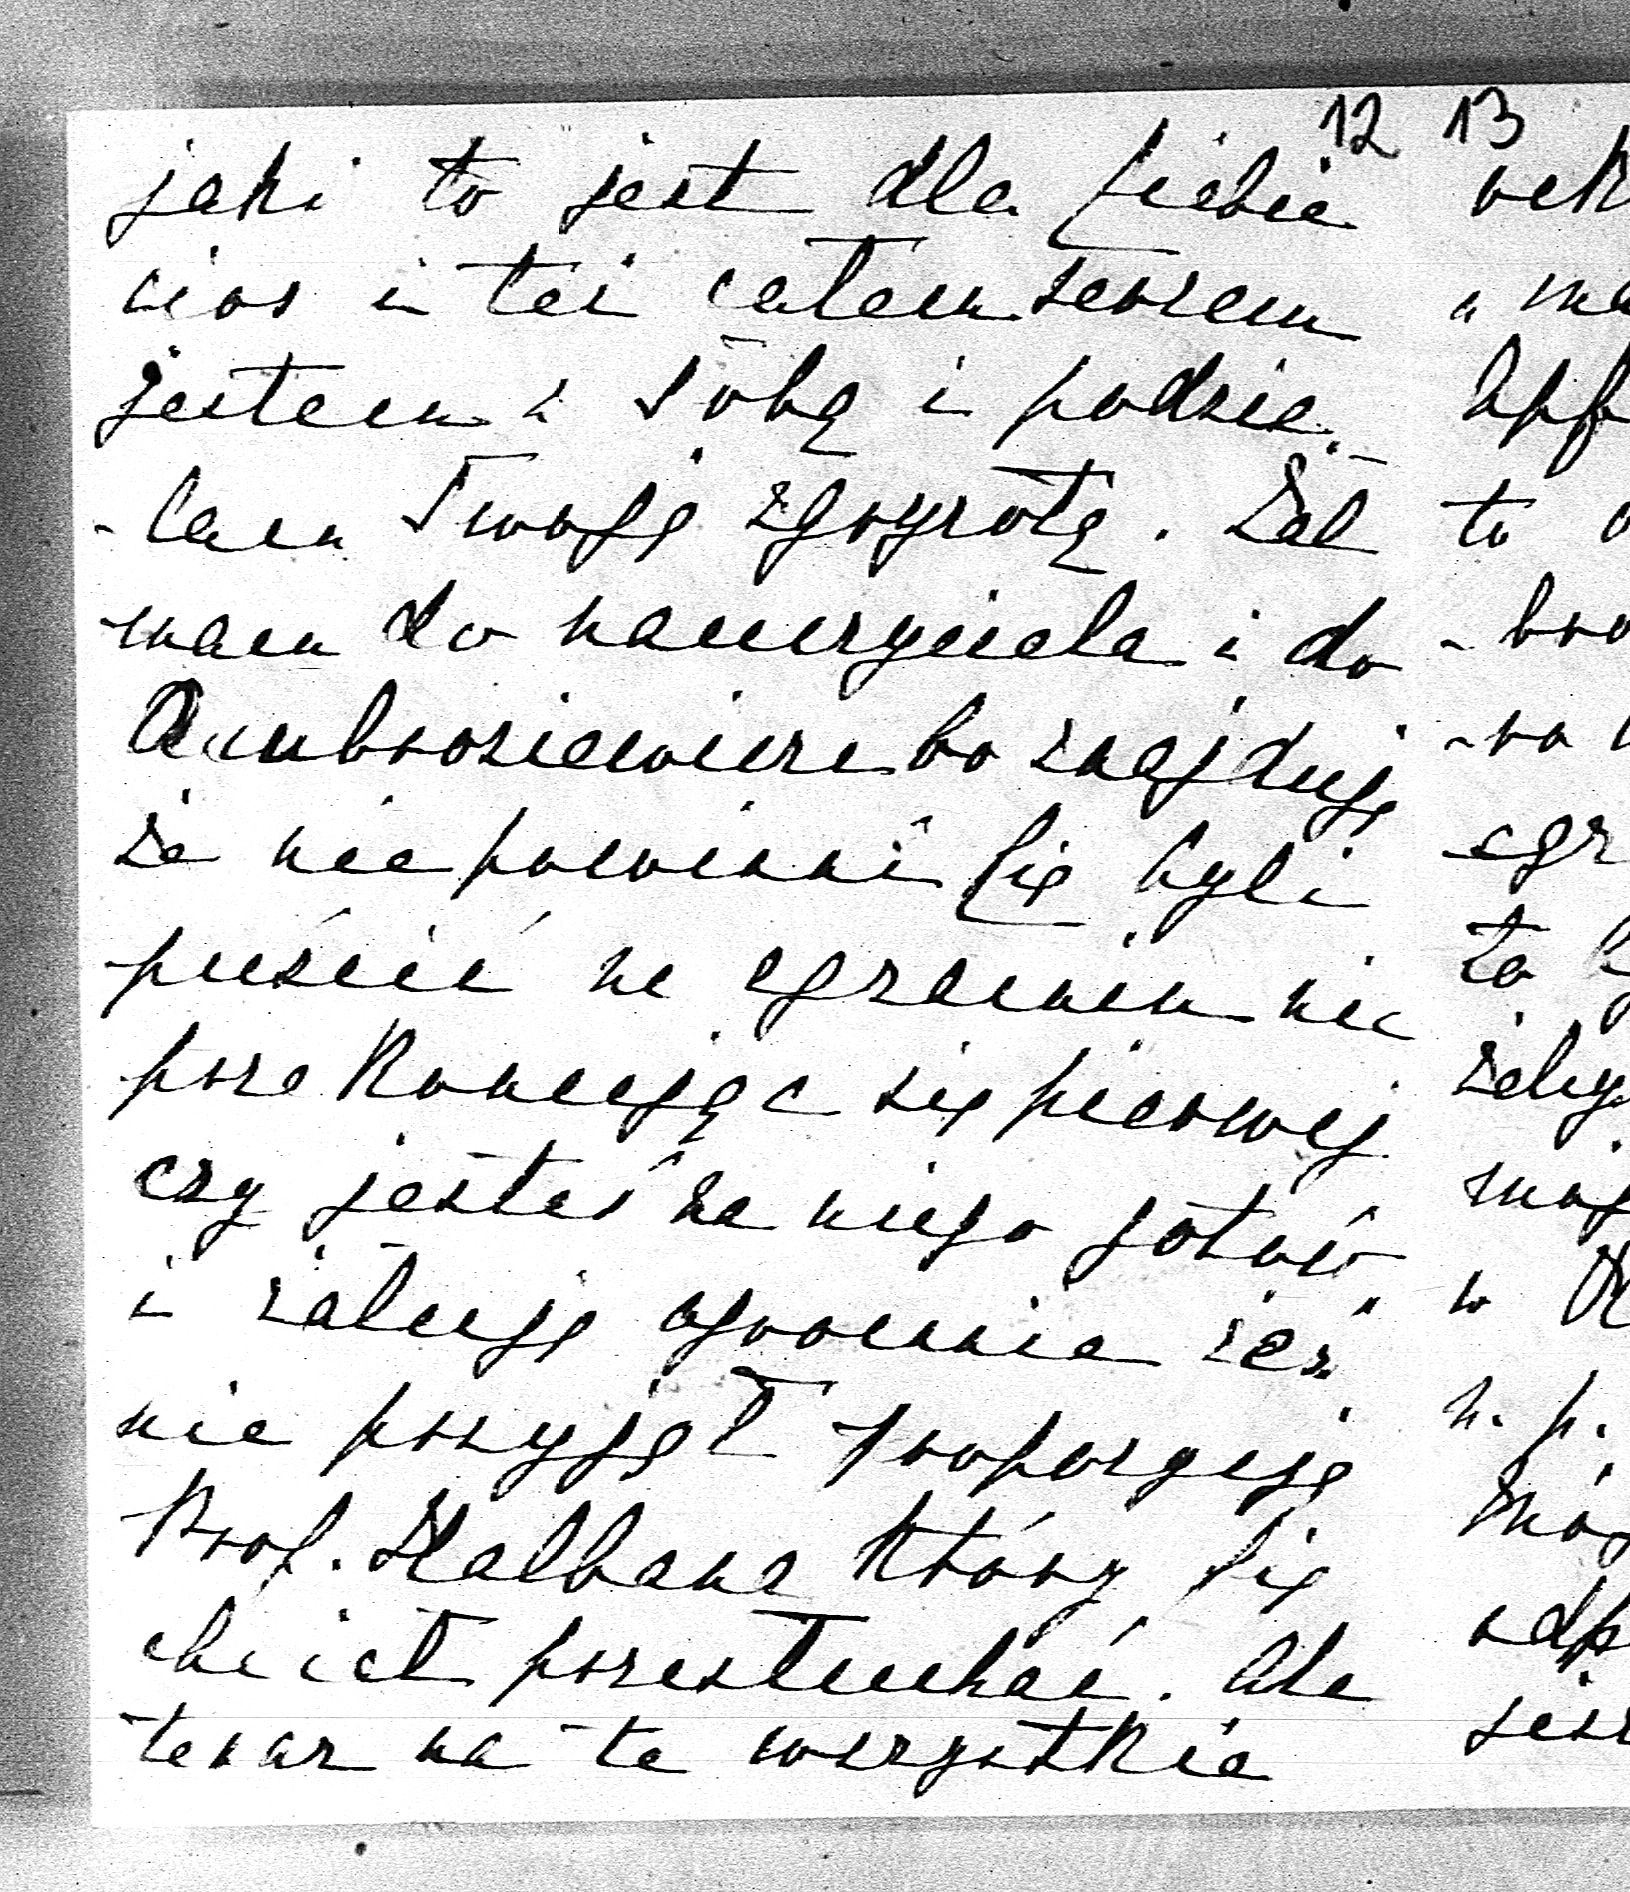 12 13
jaki to jest dla Ciebie
cios i też całem sercem
jestem z Tobą i podzie-
-lam Twoję zgryzotę. Żal
mam do nauczyciela i do
Ambrosiewicza bo znajduję
że nie powinni Cię byli
puścić na egzamin nie
przekonując się pierwej
czy jesteś na niego gotów
i żałuję ogromnie żeś
nie przyjął propozycję
Prof. Halbana który Cię
chciał przesłuchać. Ale
teraz na to wszystkie
to
-bro
-ra
egz
to
żeby
mog
w
n. p.
odp